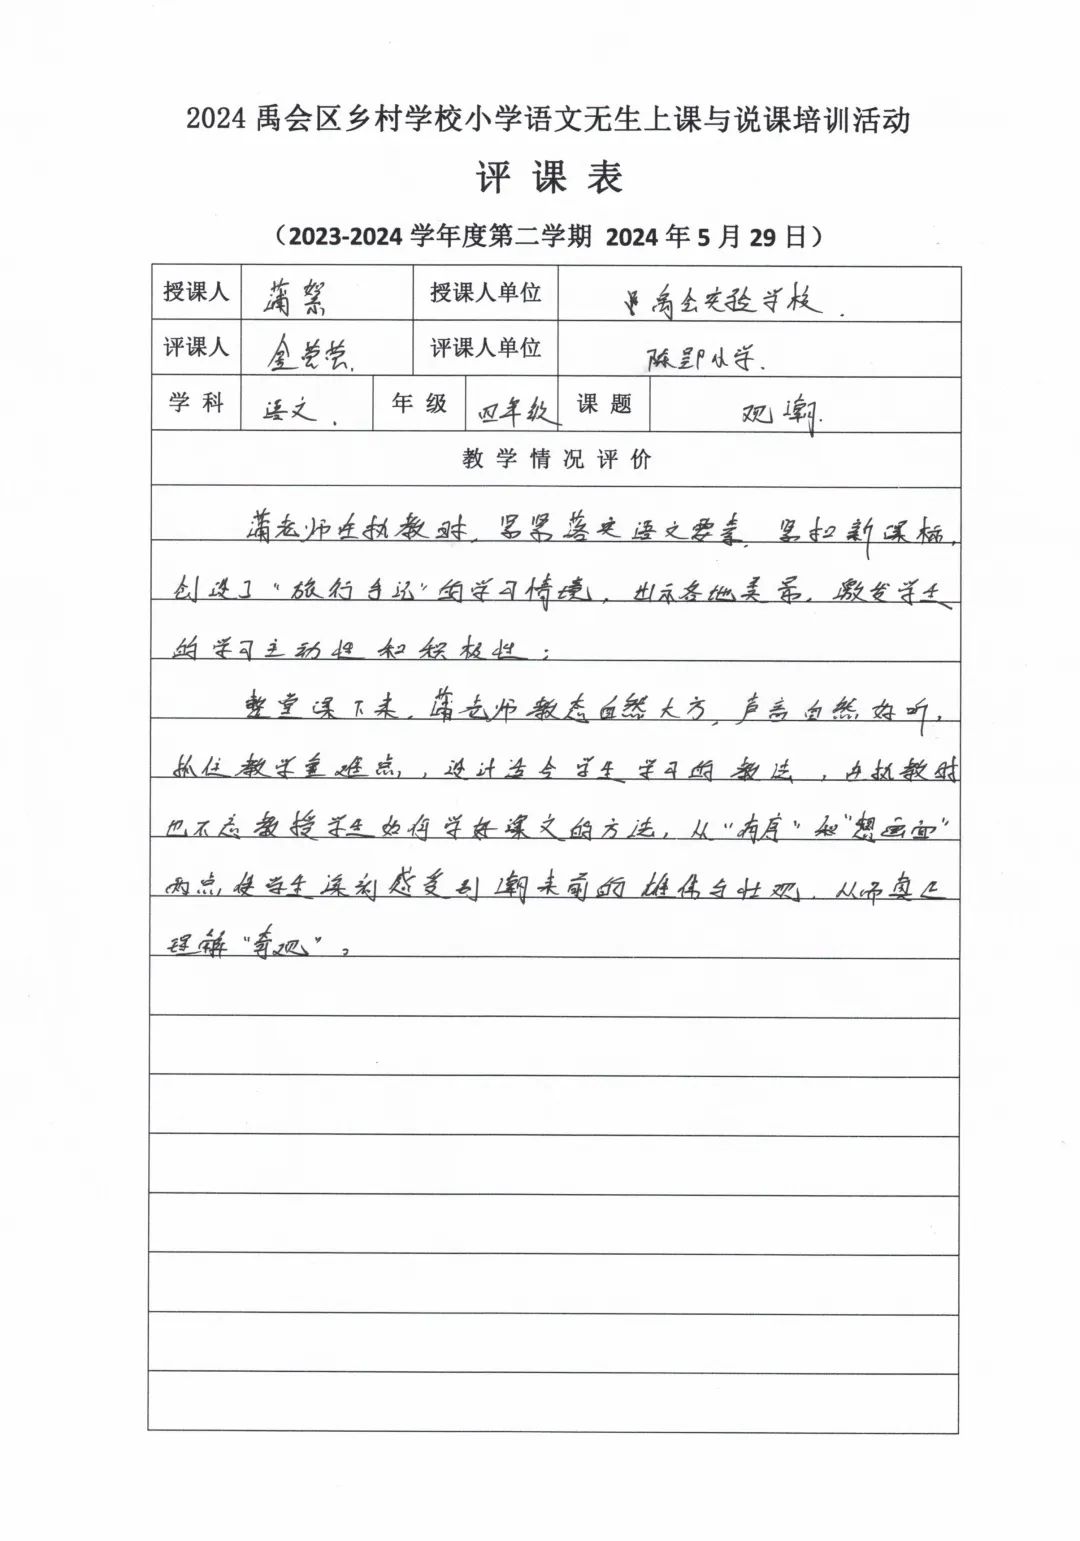 2024禹会区乡村学校小学语文无生上课与说课培训活动
评 课 表
（2023-2024 学年度第二学期 2024 年 5 月 29 日）
授课人 蒲絮 授课人单位 禹会实验学校.
评课人 金芸芸. 评课人单位 陈郢小学.
学 科 语文. 年 级 四年级 课 题 观潮.
教 学 情 况 评 价
蒲老师在执教时，紧紧落实语文要素，紧扣新课标，
创设了“旅行手记”的学习情境，出示各地美景，激发学生
的学习主动性和积极性；
整堂课下来，蒲老师教态自然大方，声音自然好听，
抓住教学重难点，，设计适合学生学习的教法，在执教时
也不忘教授学生如何学好课文的方法，从“有序”和“想画面”
两点使学生深刻感受到潮来前的雄伟与壮观，从而真正
理解“奇观”。